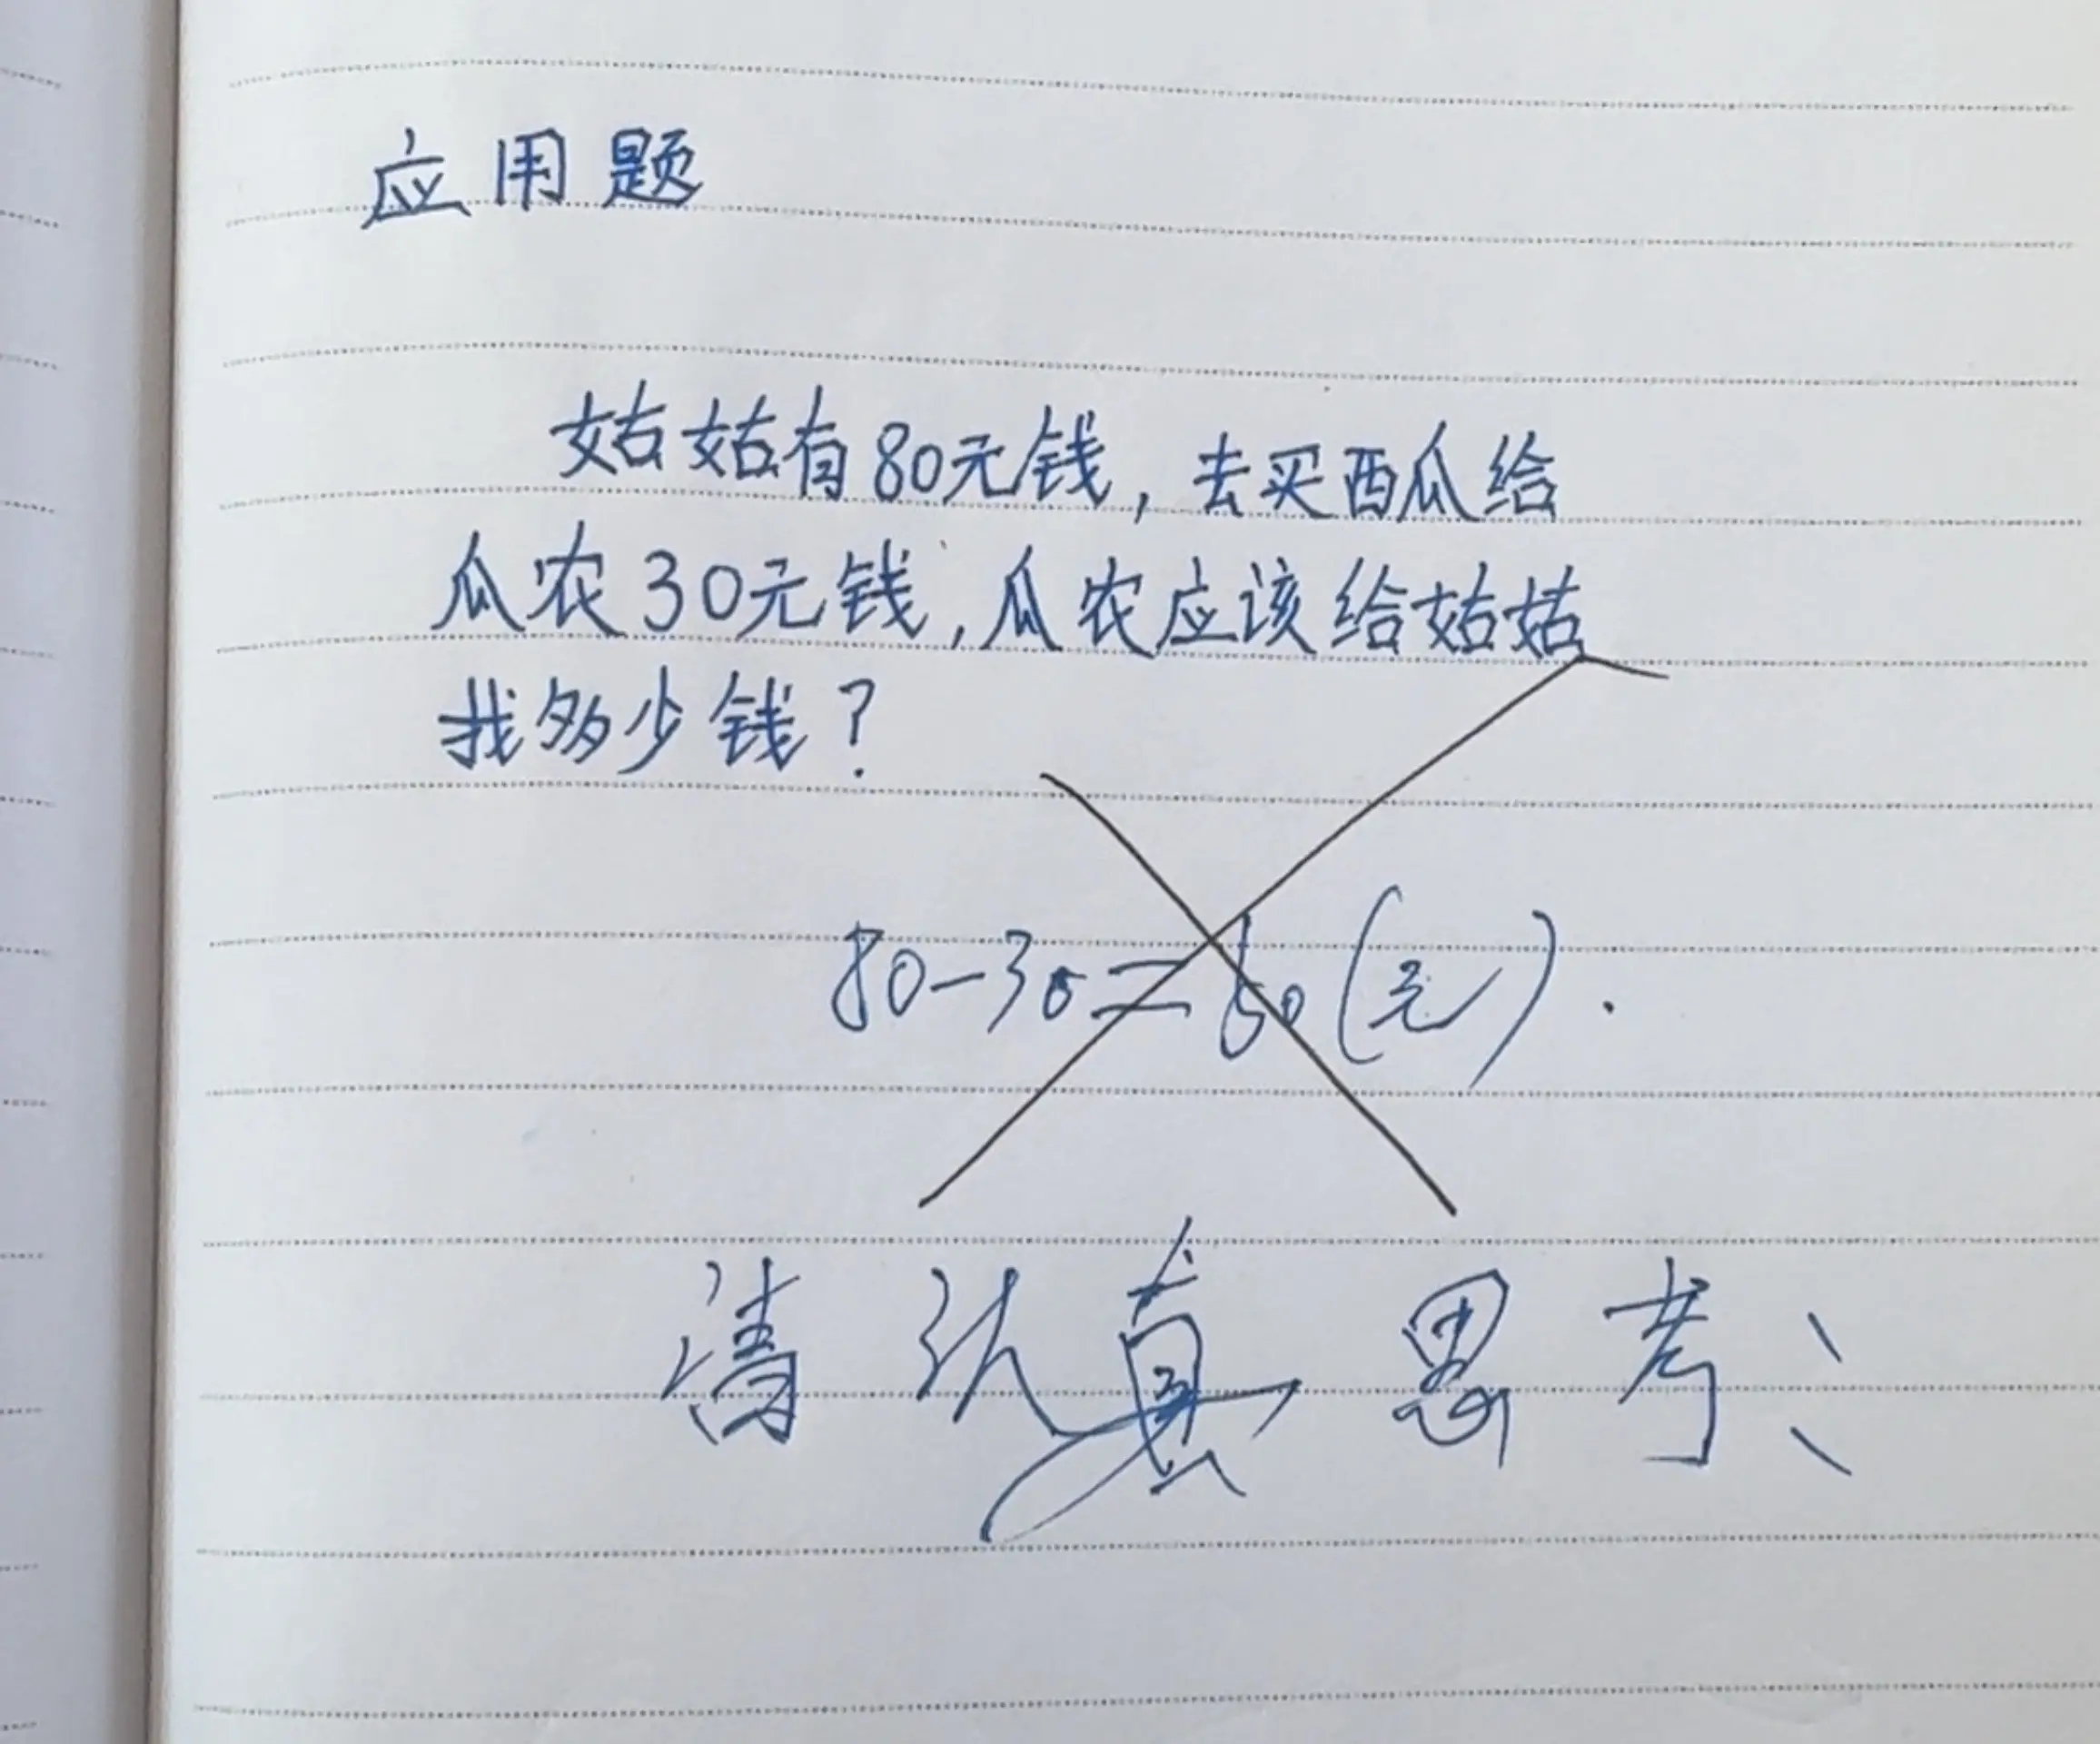 应用题
姑姑有80元钱，去买西瓜给
瓜农30元钱，瓜农应该给姑姑
找多少钱？
80-30=50(元).
请认真思考